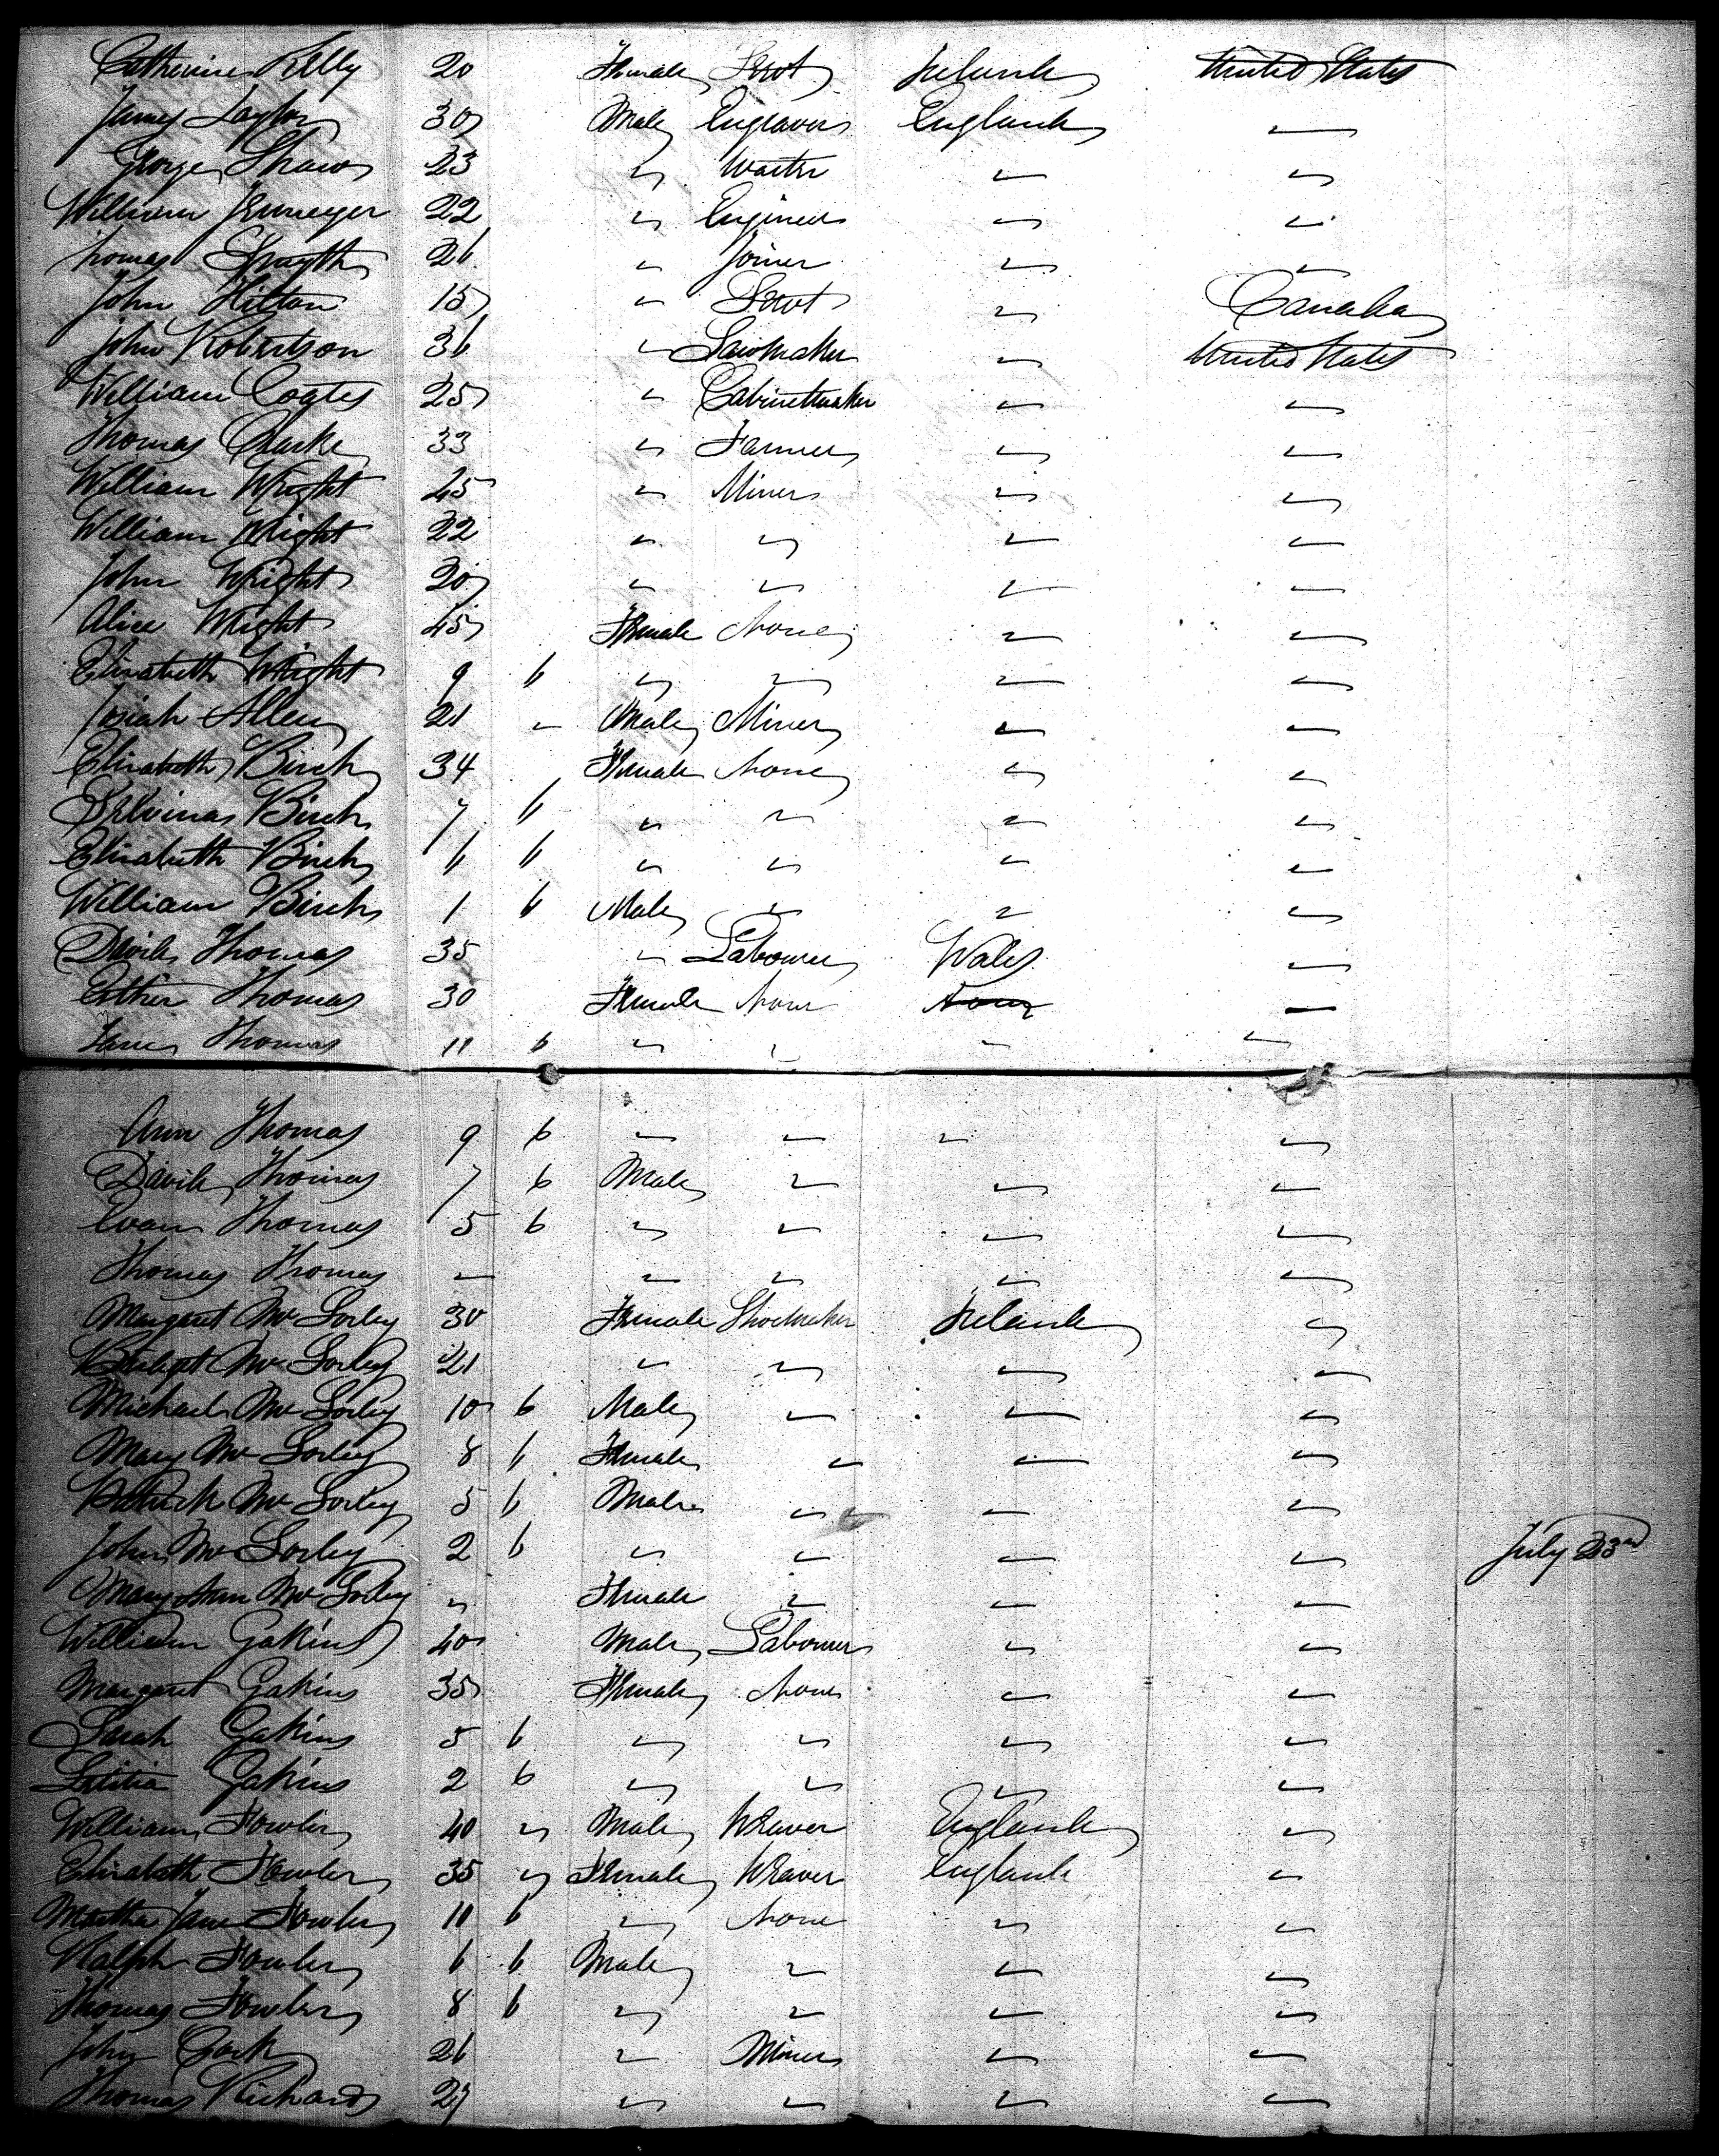 Catherine Kelly 20 Female Servt Ireland United States
James Taylor 30 Male Engraver England "
George Shaw 23 " Waiter " "
William 22 " Engineer " "
Thomas Smyth 26 " Joiner " "
John Hilton 15 " Servt " Canada
John Robertson 36 " Sawmaker " United States
William Coates 25 " Cabinetmaker " "
Thomas Clarke 33 " Farmer " "
William Wright 45 " Miner " "
William Wright 22 " " " "
John Wright 20 " " " "
Alice Wright 45 Female None " "
Elizabeth Wright 9 6 " " " "
Josiah Allen 21 " Male Miner " "
Elizabeth Birch 34 Female None " "
Birch 7 6 " " " "
Elizabeth Birch 6 6 " " " "
William Birch 1 6 Male " " "
David Thomas 35 " Labourer Wales "
Esther Thomas 30 Female None None "
Thomas 11 6 " " " "
Ann Thomas 9 6 " " " "
David Thomas 7 6 Male " " "
Evan Thomas 5 6 " " " "
Thomas Thomas " " " " "
Margaret McSorley 30 Female Shoemaker Ireland "
Bridget McSorley 21 " " " "
Michael McSorley 10 6 Male " " "
Mary McSorley 8 6 Female " " "
Patrick McSorley 5 6 Male " " "
John McSorley 2 6 " " " " July 23rd
Mary Ann McSorley " Female " " "
William Gakins 40 Male Labourer " "
Margaret Gakins 35 Female None " "
Sarah Gakins 5 6 " " " "
Letitia Gakins 2 6 " " " "
William Fowler 40 " Male Weaver England "
Elizabeth Fowler 35 " Female Weaver England "
Martha Jane Fowler 11 6 " None " "
Ralph Fowler 6 6 Male " " "
Thomas Fowler 8 6 " " " "
John 26 " Miner " "
Thomas Richards 27 " " " "